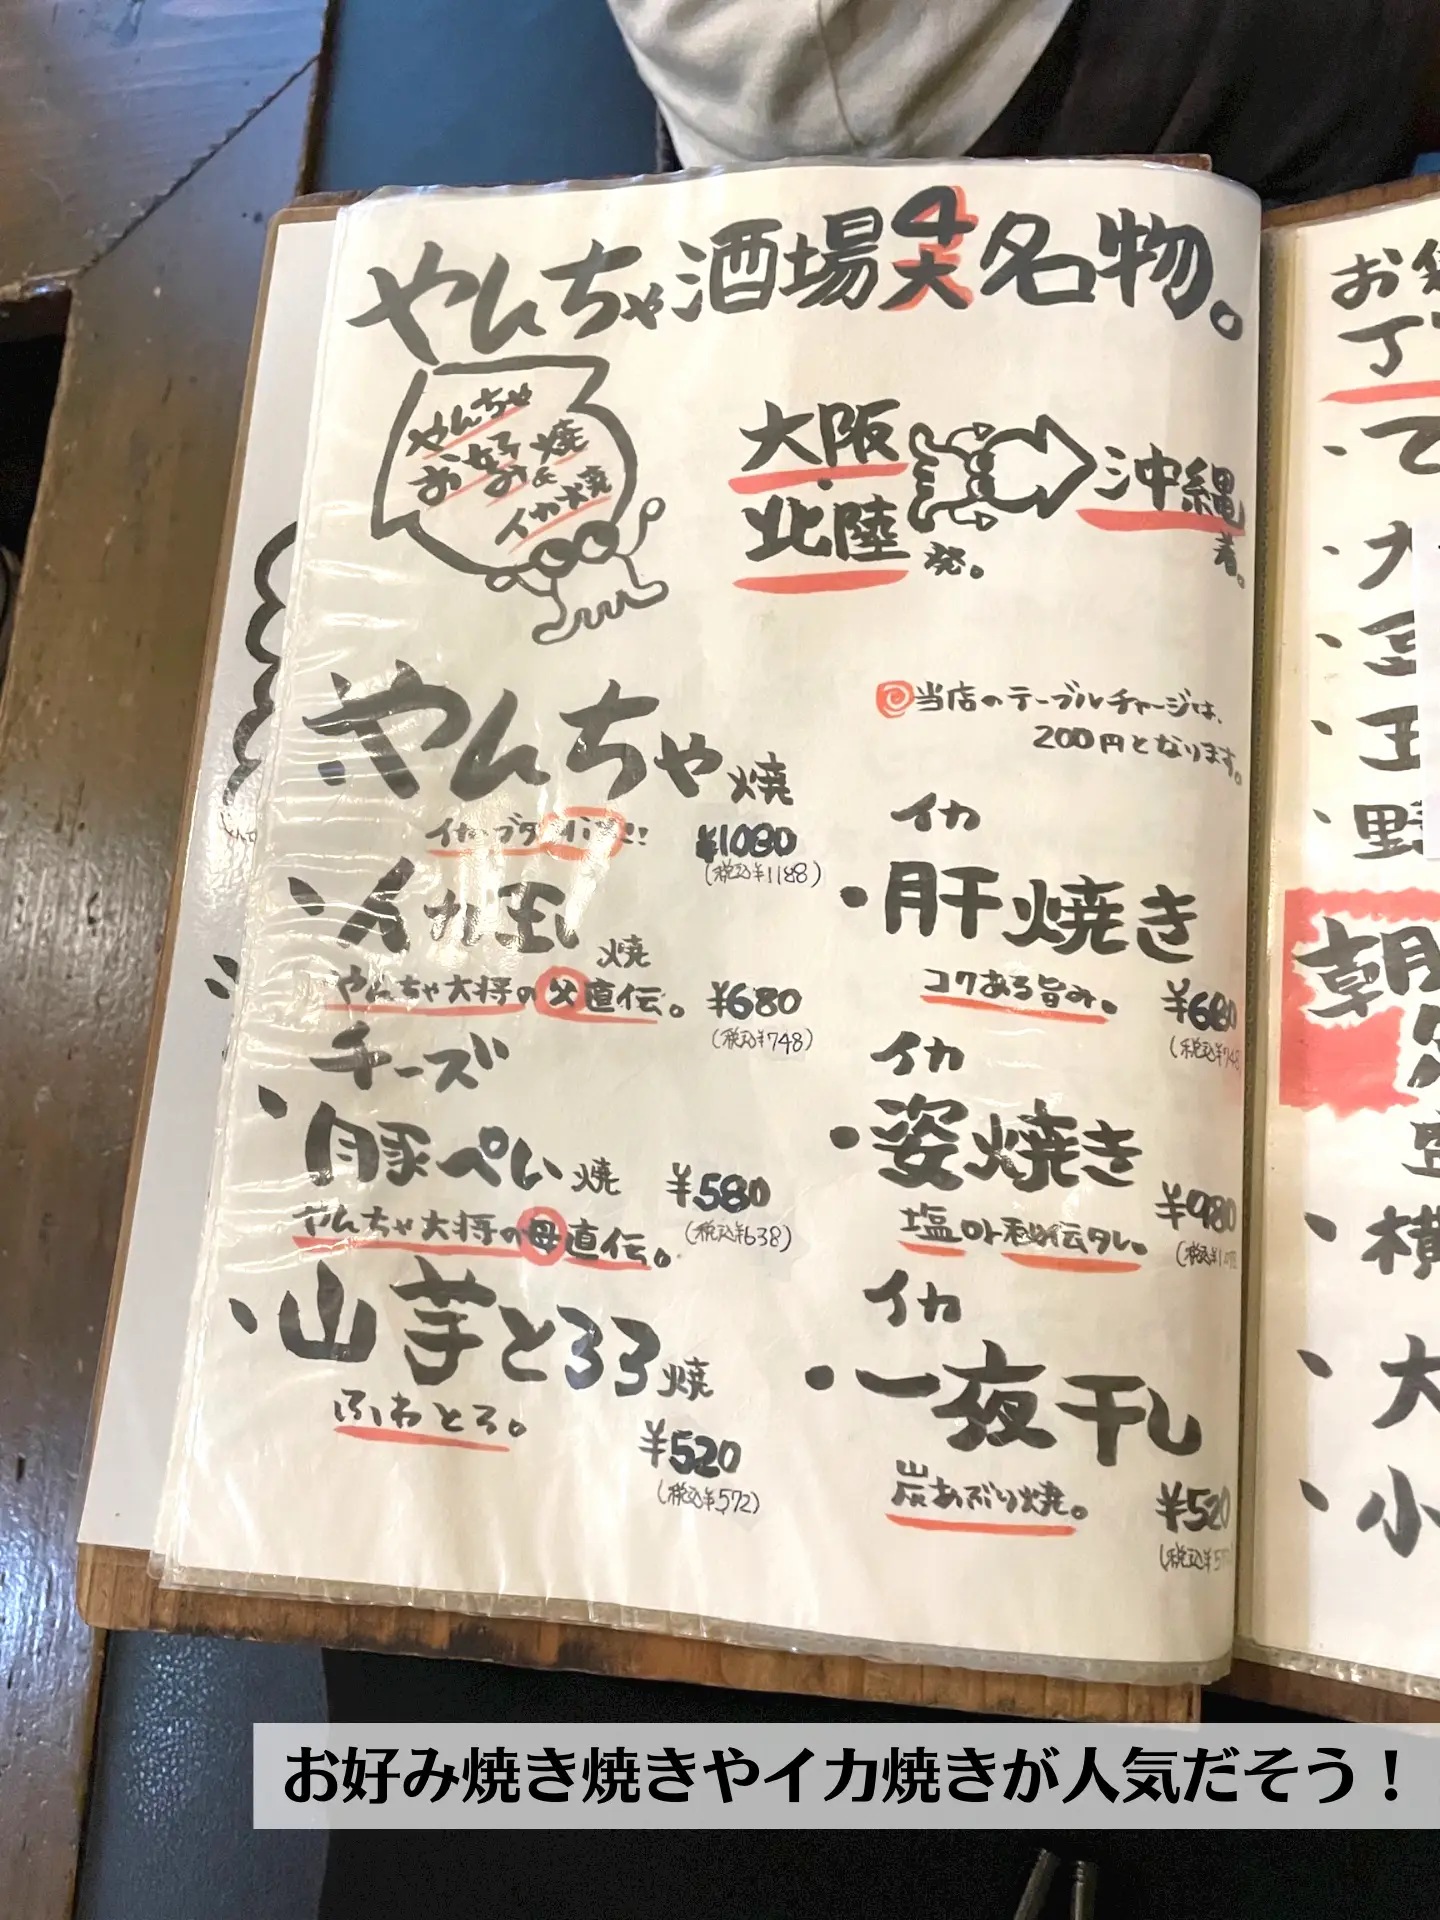 やんちゃ酒場4大名物。
やんちゃ
お好み焼
&
イカ焼
大阪
・
北陸
発。
沖縄
着。
当店のテーブルチャージは、
200円となります。
やんちゃ焼
¥1080
(税込¥1188)
イカ玉焼
やんちゃ大将の父直伝。
¥680
(税込¥748)
チーズ
豚ぺい焼
¥580
(税込¥638)
やんちゃ大将の母直伝。
山芋とろろ焼
ふわとろ。
¥520
(税込¥572)
イカ
・肝焼き
コクある旨み。
¥680
(税込¥748
イカ
・姿焼き
塩or秘伝タレ。
¥980
イカ
・一夜干し
炭あぶり焼。
¥520
お好み焼き焼きやイカ焼きが人気だそう！